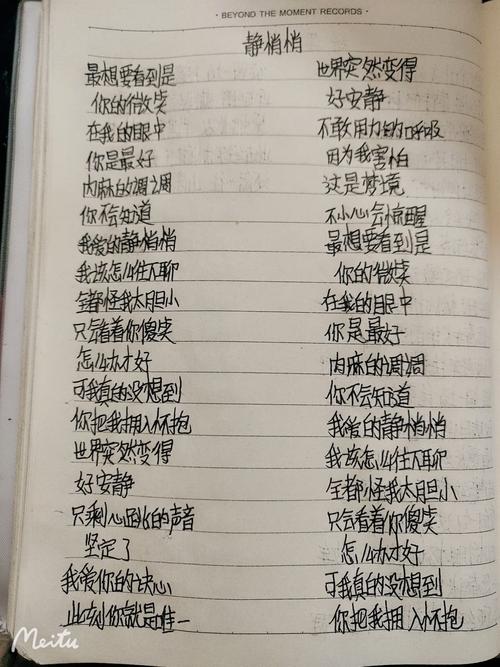 · BEYOND THE MOMENT RECORDS ·
静悄悄
最想要看到是
你的微笑
在我的眼中
你是最好
肉麻的调调
你不会知道
我爱的静悄悄
我该怎么往下聊
全都怪我太胆小
只会看着你傻笑
怎么办才好
可我真的没想到
你把我拥入怀抱
世界突然变得
好安静
只剩心跳的声音
坚定了
我爱你的决心
此刻你就是唯一
世界突然变得
好安静
不敢用力的呼吸
因为我害怕
这是梦境
不小心会惊醒
最想要看到是
你的微笑
在我的眼中
你是最好
肉麻的调调
你不会知道
我爱的静悄悄
我该怎么往下聊
全都怪我太胆小
只会看着你傻笑
怎么办才好
可我真的没想到
你把我拥入怀抱
Meitu